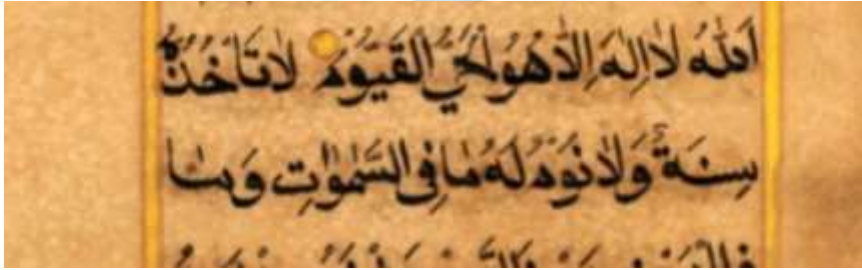 اَللّٰهُ لَا اِلٰهَ اِلَّا هُوَ الْحَيُّ الْقَيُّوْمُ لَا تَاْخُذُهٗ
سِنَةٌ وَلَا نَوْمٌ لَهُ مَا فِى السَّمٰوَاتِ وَمَا